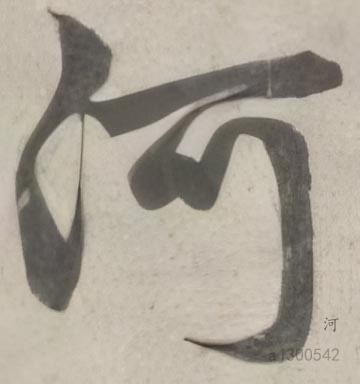 河
河
a1300542